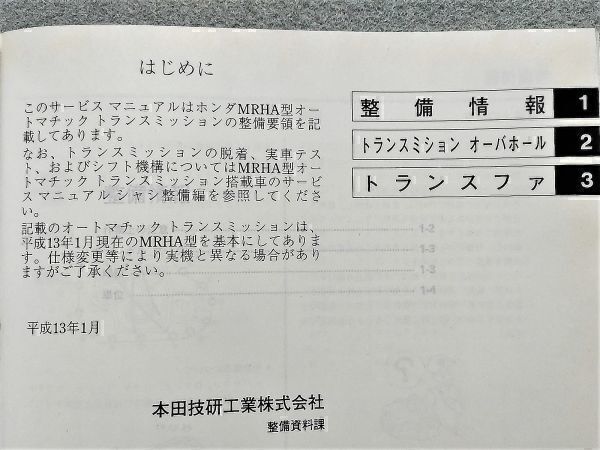 はじめに
このサービス マニュアルはホンダMRHA型オー
トマチック トランスミッションの整備要領を記
載してあります。
なお、トランスミッションの脱着、実車テス
ト、およびシフト機構についてはMRHA型オー
トマチック トランスミッション搭載車のサービ
ス マニュアル シャシ整備編を参照してくださ
い。
記載のオートマチック トランスミッションは、
平成13年1月現在のMRHA型を基本にしてありま
す。仕様変更等により実機と異なる場合があり
ますがご了承ください。
平成13年1月
本田技研工業株式会社
整備資料課
整備情報 1
トランスミション オーバホール 2
トランスファ 3
1-2
1-3
1-3
単位 1-4